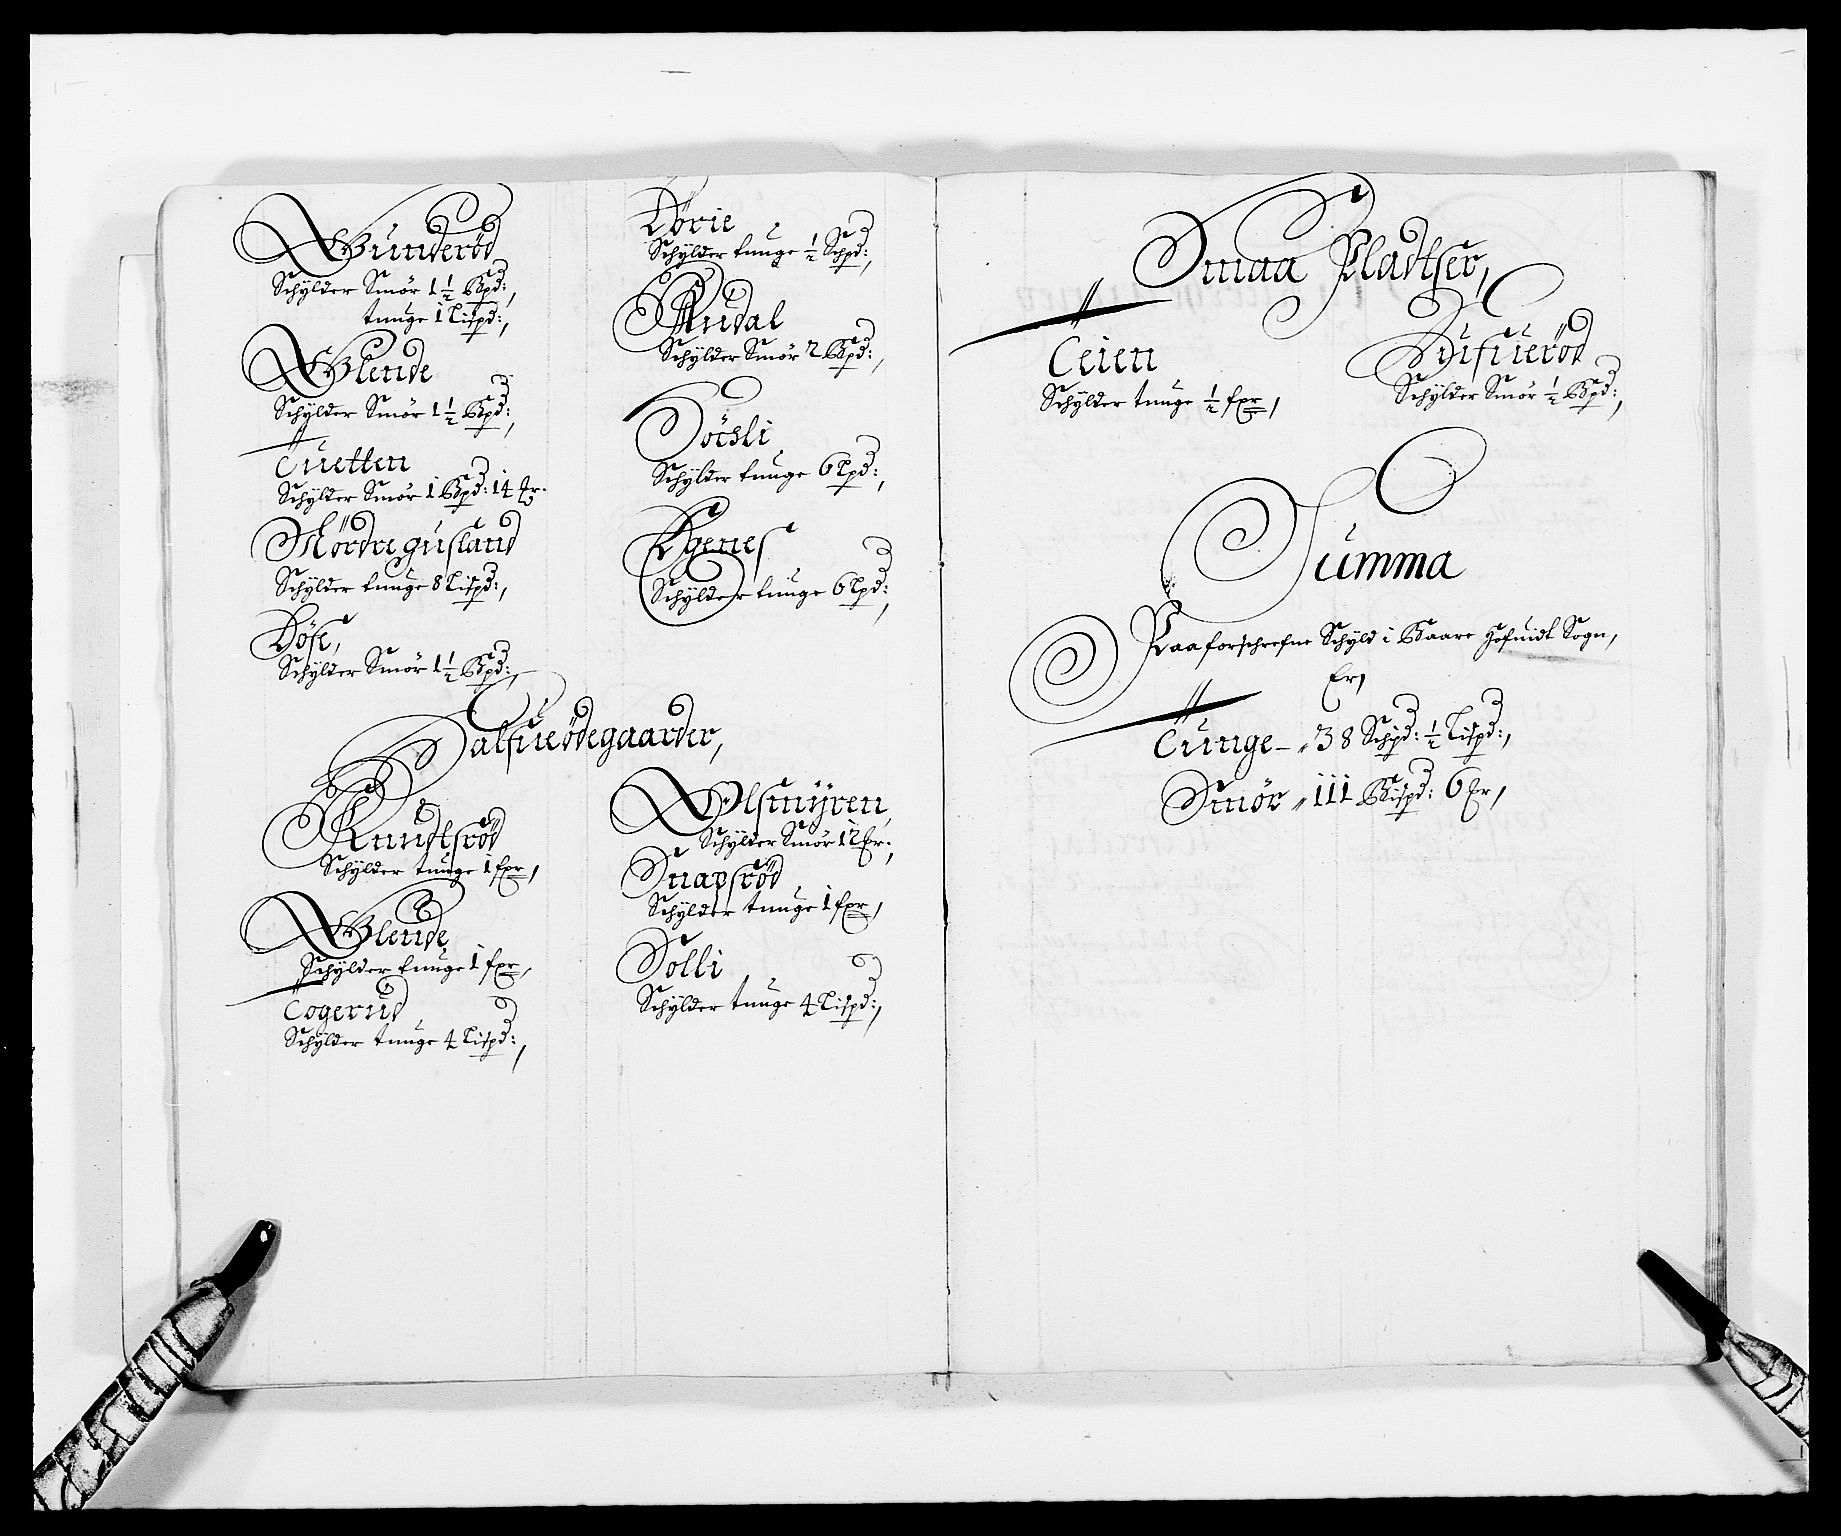 Gunderød
Schylder Smør 1 1/2 Bpd:,
tunge 1 Lispd:,
Glende
Schylder Smør 1 1/2 Bpd:,
Tuetten
Schylder Smør 1 Bpd: 14 Er.
Nordre gusland
Schylder tunge 8 Lispd:,
Døse,
Schylder Smør 1 1/2 Bpd:,
Dørie
Schylder tunge 1/2 Schpd:,
Rudal
Schylder Smør 2 Bpd:,
Schylder tunge 6 Lpd:,
Egenes
Schylder tunge 6 Lpd:,
Halfueødegaarder,
Knudtsrød
Schylder tunge 1 fxr,
Glende
Schylder tunge 1 fxr,
Togerud
Schylder tunge 4 Lispd:,
Olsmyren,
Schylder Smør 12 Er:,
Snapsrød
Schylder tunge 1 fxr,
Solli
Schylder tunge 4 Lispd:,
Smaa Pladtser,
Teien
Schylder tunge 1/2 fxr,
Schylder Smør 1/2 Bpd:,
Summa
Paaforschrefne Schyld i Baare Hofuidt Sogn,
Er,
Tunge - 38 Schpd: 1/2 Lispd:,
Smør 111 Bispd: 6 Er,